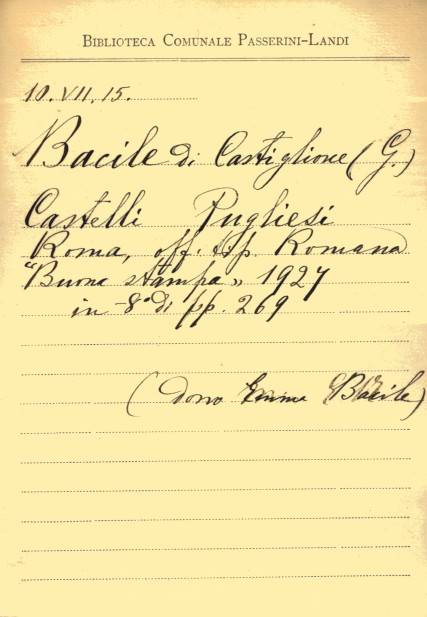 BIBLIOTECA COMUNALE PASSERINI-LANDI
10.VII.15.
Bacile di Castiglione (G.)
Castelli Pugliesi
Roma, off. tip. Romana
"Buona stampa" 1927
in-8° di pp. 269
(dono Bacile)